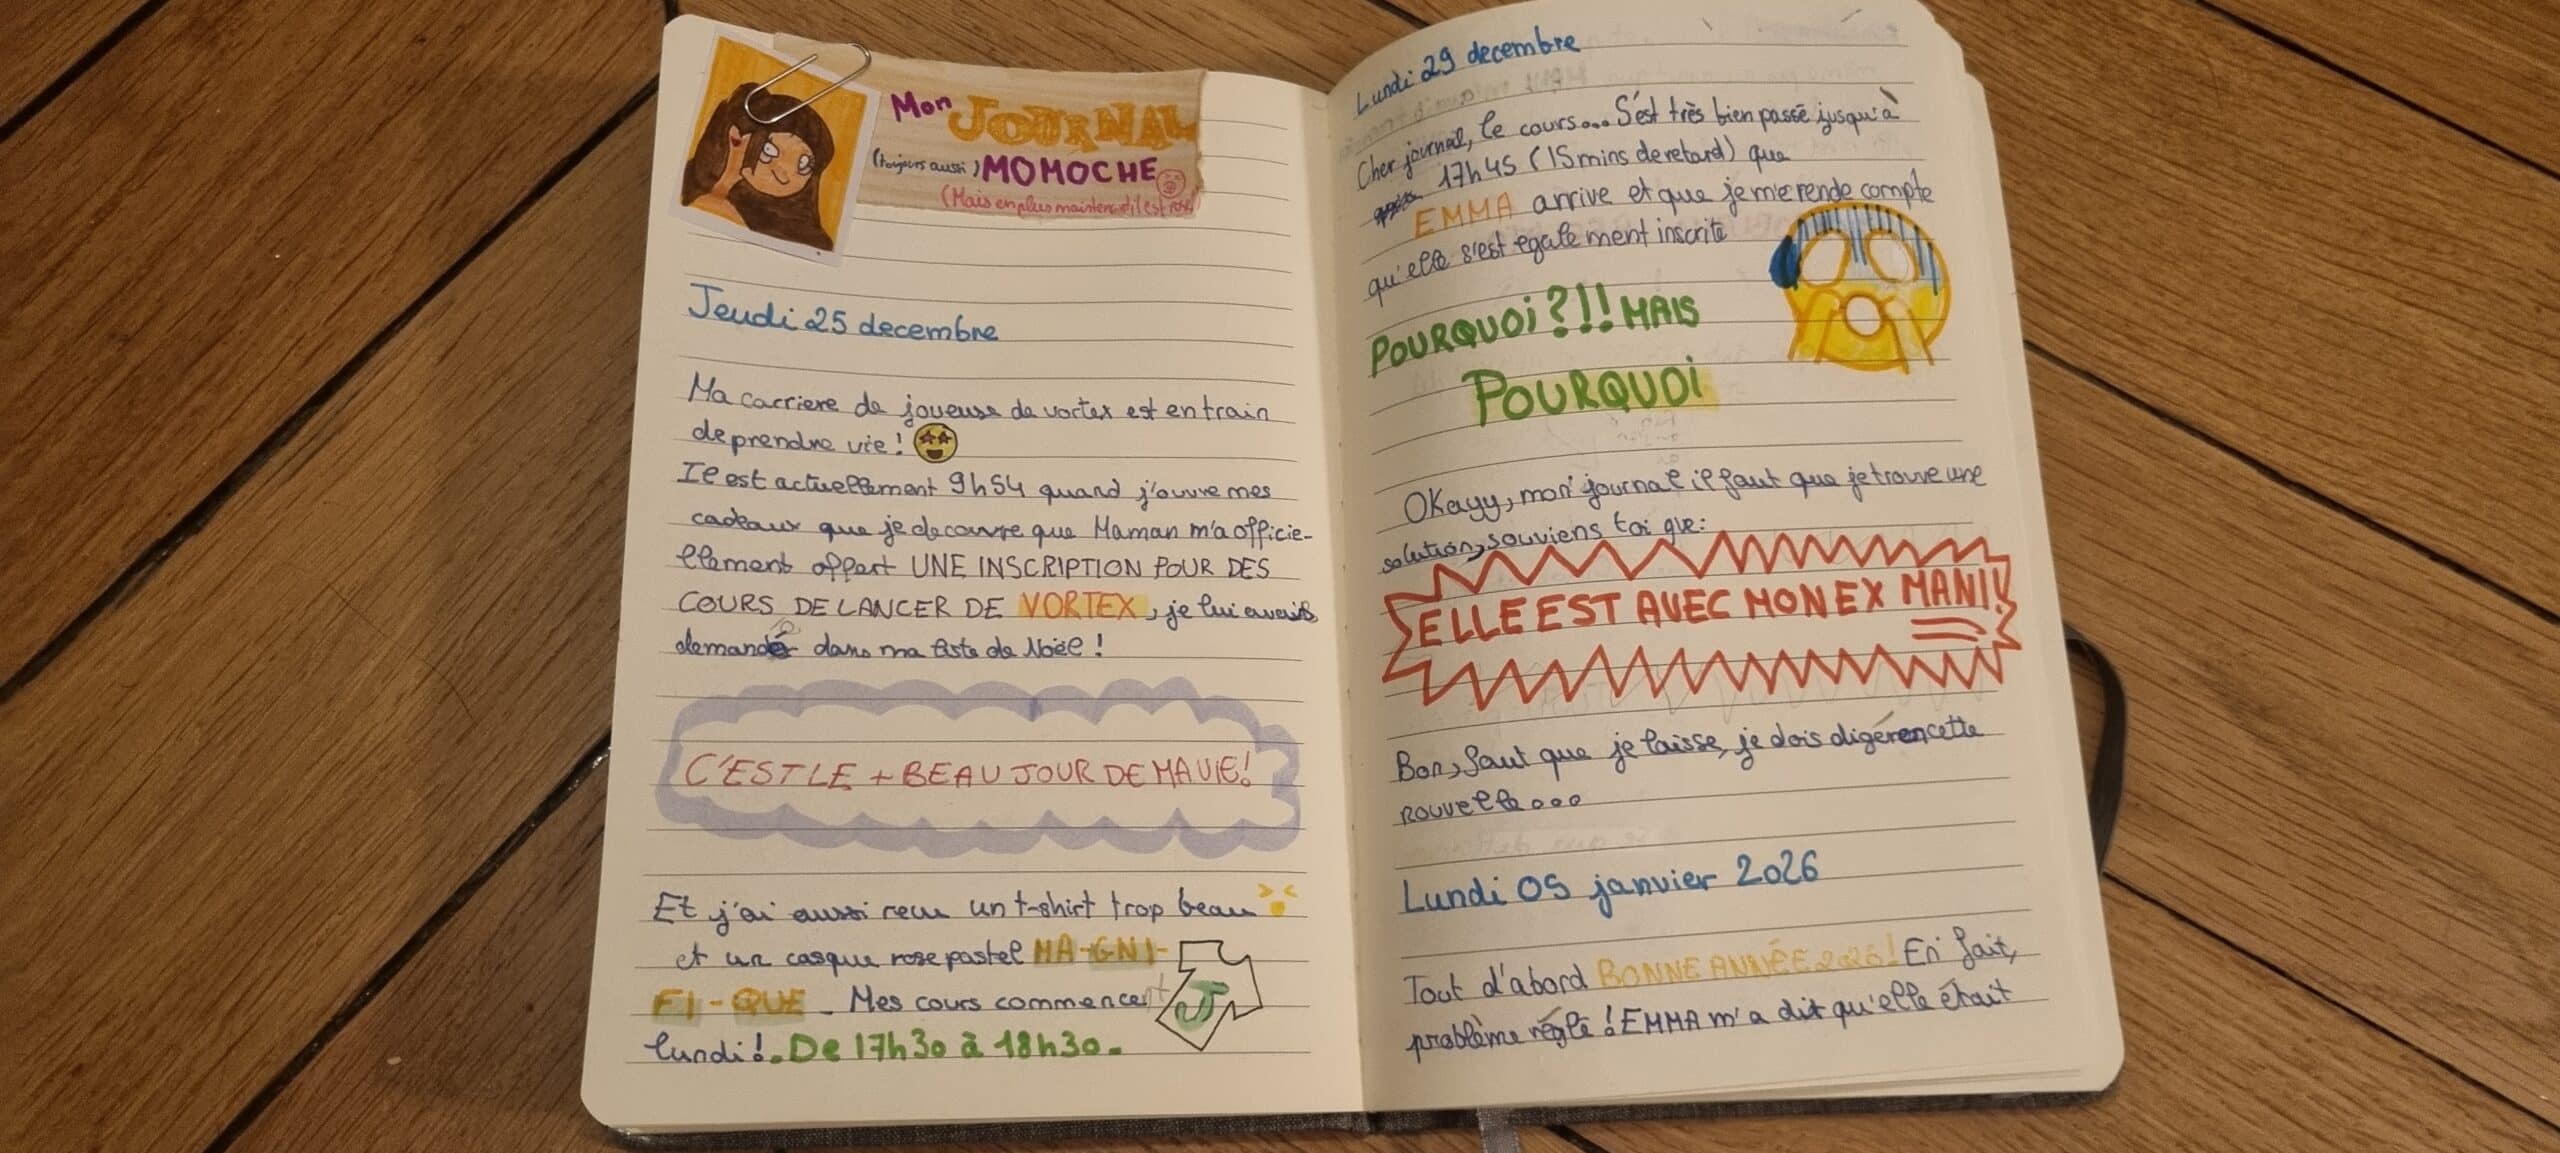 Mon JOURNAL
(toujours aussi) MOMOCHE
(Mais en plus maintenant il est rose)
Jeudi 25 decembre
Ma carriere de joueuse de vortex est en train
de prendre vie!
Il est actuellement 9h54 quand j'ouvre mes
cadeaux que je decouvre que Maman m'a officie-
llement offert UNE INSCRIPTION POUR DES
COURS DE LANCER DE VORTEX, je lui avais
demandé dans ma liste de Noël!
C'EST LE + BEAU JOUR DE MA VIE!
Et j'ai aussi recu un t-shirt trop beau
et un casque rose pastel MA-GNI-
FI-QUE. Mes cours commencent
lundi!. De 17h30 à 18h30.
J
Lundi 29 decembre
Cher journal, le cours... S'est très bien passé jusqu'à
17h45 (15mins de retard) que
EMMA arrive et que je me rende compte
qu'elle s'est egalement inscrite
POURQUOI?!! MAIS
POURQUOI
OKayy, mon journal il faut que je trouve une
solution, souviens toi que:
ELLE EST AVEC MON EX MANI!!
Bon, faut que je laisse, je dois digérer cette
nouvelle...
Lundi 05 janvier 2026
Tout d'abord BONNE ANNÉE 2026! En fait,
problème réglé! EMMA m'a dit qu'elle était